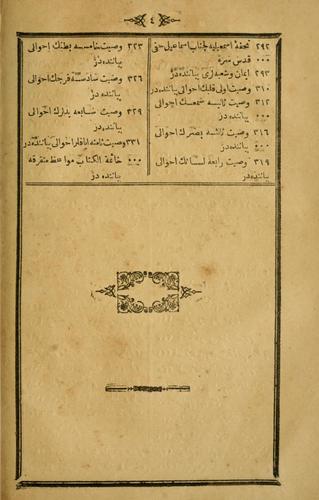 ٤
٢٩٢ تحفهٔ اسمعیلیه جناب اسماعیل حقی
٠٠٠ قدس سره
٢٩٣ ایمان وشعبه‌لری بیاننده‌در
٣١٠ وصیت اولی قلبك احوالی بیاننده‌در
٣١٢ وصیت ثانیه سمعك احوالی
٠٠٠ بیاننده‌در
٣١٦ وصیت ثالثه بصرك احوالی
٠٠٠ بیاننده‌در
٣١٩ وصیت رابعه لسانك احوالی
بیاننده‌در
٣٢٣ وصیت خامسه بطنك احوالی
بیاننده‌در
٣٢٦ وصیت سادسه فرجك احوالی
بیاننده‌در
٣٢٩ وصیت سابعه یدلرك احوالی
بیاننده‌در
٣٣١ وصیت ثامنه ایاقلر احوالی بیاننده‌در
٠٠٠ خاتمة الكتاب مواعظ متفرقه
بیاننده‌در